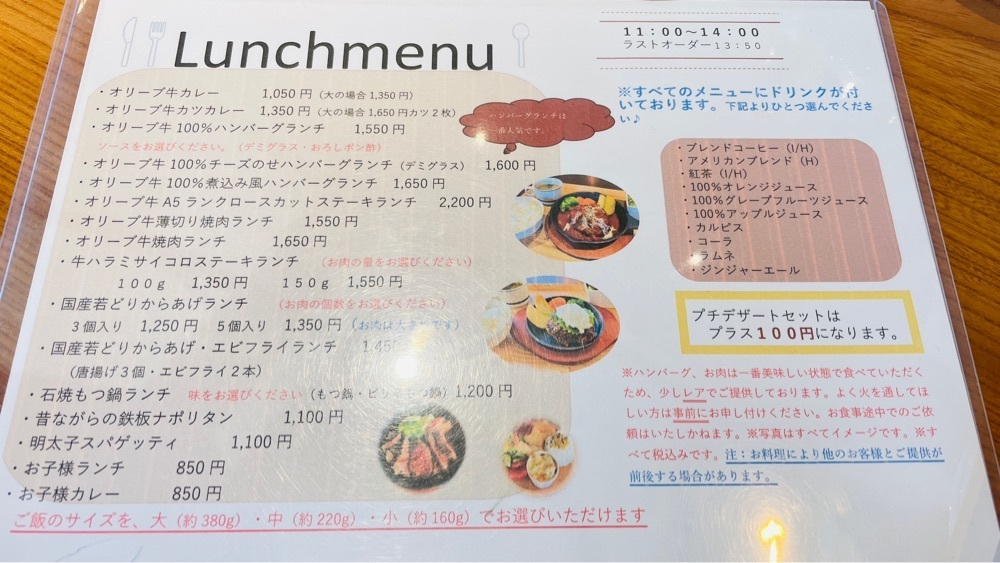 Lunchmenu
11:00～14:00
ラストオーダー13:50
・オリーブ牛カレー 1,050円 (大の場合1,350円)
・オリーブ牛カツカレー 1,350円 (大の場合1,650円カツ2枚)
・オリーブ牛100%ハンバーグランチ 1,550円
ソースをお選びください。(デミグラス・おろしポン酢)
・オリーブ牛100%チーズのせハンバーグランチ (デミグラス) 1,600円
・オリーブ牛100%煮込み風ハンバーグランチ 1,650円
・オリーブ牛A5ランクロースカットステーキランチ 2,200円
・オリーブ牛薄切り焼肉ランチ 1,550円
・オリーブ牛焼肉ランチ 1,650円
・牛ハラミサイコロステーキランチ (お肉の量をお選びください)
100g 1,350円 150g 1,550円
・国産若どりからあげランチ (お肉の個数をお選びください)
3個入り 1,250円 5個入り 1,350円 (お肉は大きめです)
・国産若どりからあげ・エビフライランチ 1,45
(唐揚げ3個・エビフライ2本)
・石焼もつ鍋ランチ 味をお選びください (もつ鍋・ピリ辛もつ鍋) 1,200円
・昔ながらの鉄板ナポリタン 1,100円
・明太子スパゲッティ 1,100円
・お子様ランチ 850円
・お子様カレー 850円
ご飯のサイズを、大(約380g)・中(約220g)・小(約160g)でお選びいただけます
ハンバーグランチは
一番人気です。
※すべてのメニューにドリンクが付
いております。下記よりひとつ選んでくださ
い♪
・ブレンドコーヒー (I/H)
・アメリカンブレンド (H)
・紅茶 (I/H)
・100%オレンジジュース
・100%グレープフルーツジュース
・100%アップルジュース
・カルピス
・コーラ
・ラムネ
・ジンジャーエール
プチデザートセットは
プラス100円になります。
※ハンバーグ、お肉は一番美味しい状態で食べていただく
ため、少しレアでご提供しております。よく火を通してほ
しい方は事前にお申し付けください。お食事途中でのご依
頼はいたしかねます。※写真はすべてイメージです。※す
べて税込みです。注：お料理により他のお客様とご提供が
前後する場合があります。